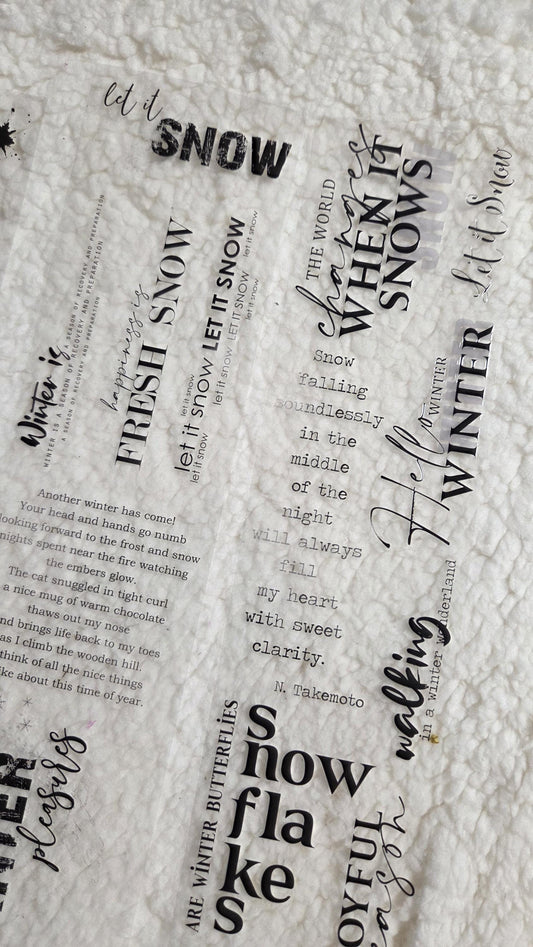 let it
SNOW
THE WORLD
changes
WHEN IT
SNOWS
Let it Snow
Winter is
A SEASON OF RECOVERY AND PREPARATION
WINTER IS A SEASON OF RECOVERY AND PREPARATION
A SEASON OF RECOVERY AND PREPARATION
happiness is
FRESH SNOW
let it snow
let it snow LET IT SNOW
let it snow LET IT SNOW let it snow
let it snow
let it snow
Snow
falling
soundlessly
in the
middle
of the
night
will always
fill
my heart
with sweet
clarity.
N. Takemoto
Hello
WINTER
WINTER
Another winter has come!
Your head and hands go numb
looking forward to the frost and snow
nights spent near the fire watching
the embers glow.
The cat snuggled in tight curl
a nice mug of warm chocolate
thaws out my nose
nd brings life back to my toes
as I climb the wooden hill.
think of all the nice things
ke about this time of year.
walking
in a winter wonderland
NTER
pleasures
ARE WINTER BUTTERFLIES
s
now
fla
ke
s
OYFUL
ason